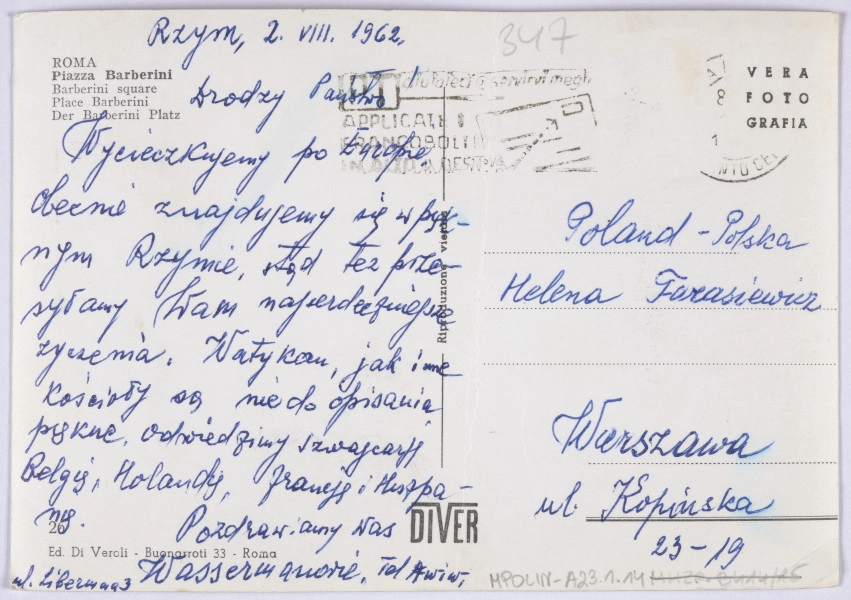 Rzym, 2. VIII. 1962.
347
ROMA
Piazza Barberini
Barberini square
Place Barberini
Der Barberini Platz
Drodzy Państwo!
Wycieczkujemy po Europie,
obecnie znajdujemy się w pięk-
nym Rzymie, stąd też prze-
syłamy Wam najserdeczniejsze
życzenia. Watykan, jak i inne
kościoły są nie do opisania
piękne, odwiedzimy Szwajcarję
Belgię, Holandję, Francję i Hiszpa-
nię.
Pozdrawiamy Was
Wassermanowie, Tel Awiw,
ul. Libermana 3
26
Ed. Di Veroli - Buonarroti 33 - Roma
Riproduzione vietata
DIVER
aiutateci a servirvi meglio
APPLICATE I
FRANCOBOLLI
IN ALTO A DESTRA
VERA
FOTO
GRAFIA
Poland - Polska
Helena Tarasiewicz
Warszawa
ul. Kopińska
23-19
MPOLIN-A23.1.14